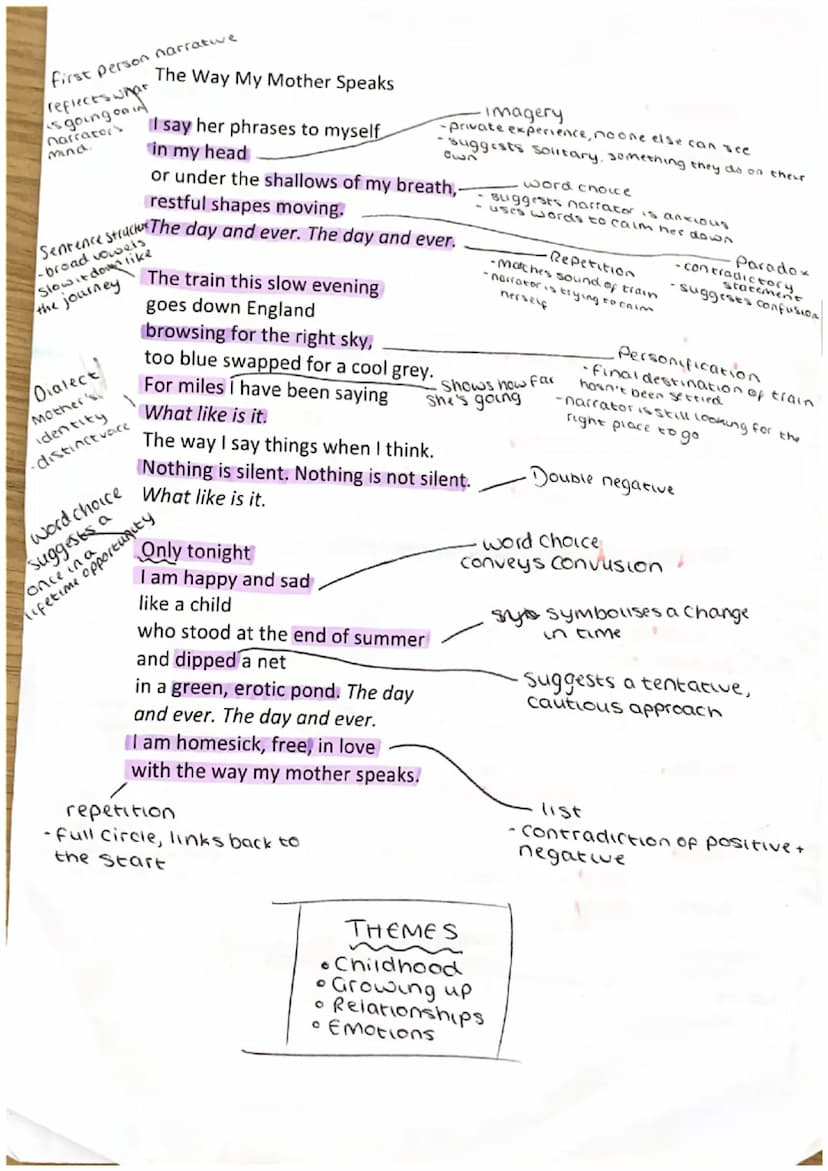 First person narrative
reflects what
is going on in
narrator's
mind.
The Way My Mother Speaks
I say her phrases to myself
in my head
or under the shallows of my breath,
restful shapes moving.
The day and ever. The day and ever.
Imagery
- private experience, no one else can see
- suggests solitary, something they do on their
own
word choice
- suggests narrator is anxious
- uses words to calm her down
Paradox
- contradictory
statement
- suggests confusion
Repetition
- matches sound of train
- narrator is trying to calm
herself
Sentence structure
- broad vowels
slow it down like
the journey
The train this slow evening
goes down England
browsing for the right sky,
too blue swapped for a cool grey.
For miles I have been saying
What like is it.
The way I say things when I think.
Nothing is silent. Nothing is not silent.
What like is it.
Personification
- final destination of train
hasn't been settled
- narrator is still looking for the
right place to go
Shows how far
she's going
Dialect
mother's
identity
- distinct
Double negative
word choice
suggests a
once in a
lifetime opportunity
Only tonight
I am happy and sad
like a child
who stood at the end of summer
and dipped a net
in a green, erotic pond. The day
and ever. The day and ever.
I am homesick, free, in love
with the way my mother speaks.
word choice
conveys convusion
symbolises a change
in time
suggests a tentative,
cautious approach
repetition
- full circle, links back to
the start
list
- contradiction of positive +
negative
THEMES
• Childhood
• Growing up
• Relationships
• Emotions